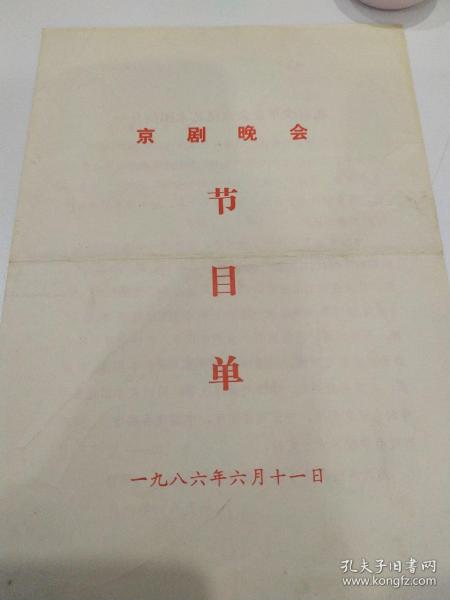 京剧晚会
节
目
单
一九八六年六月十一日
孔夫子旧书网
www.kongfz.com